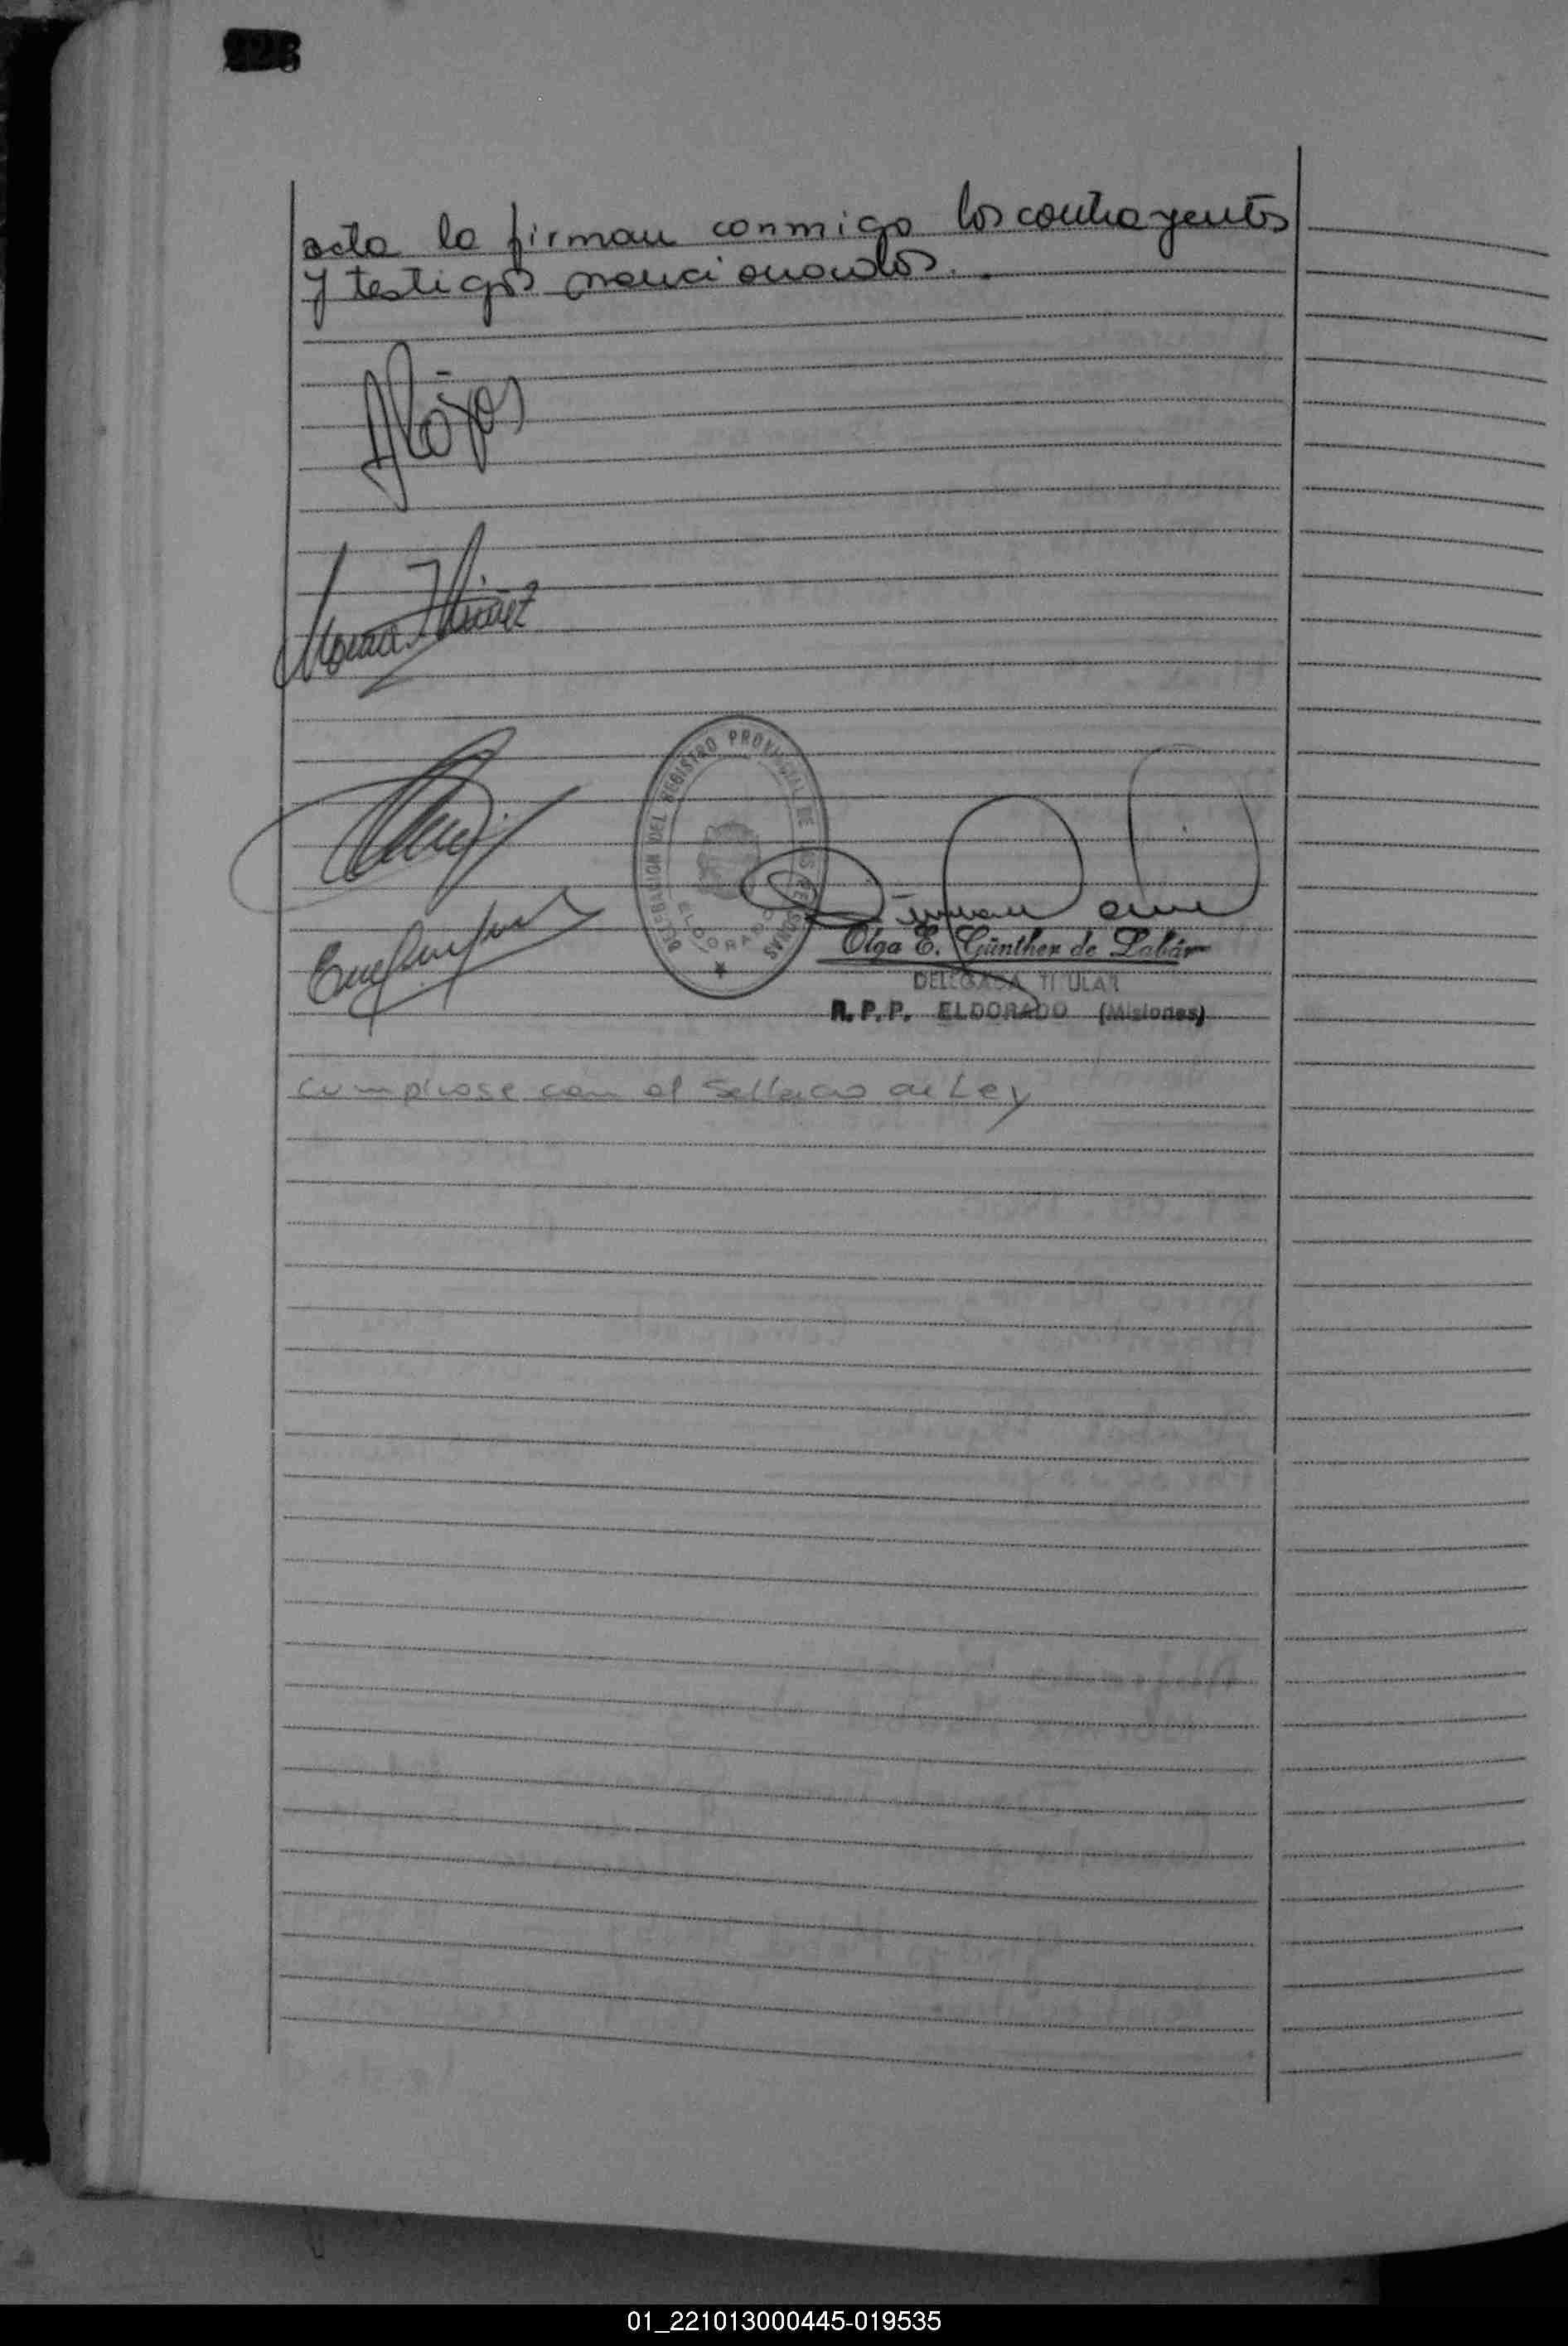 acta la firman conmigo los contrayentes
y testigos mencionados.
ARojas
DELEGACION DEL REGISTRO PROVINCIAL DE LAS PERSONAS
ELDORADO
Olga E. Günther de Labár
DELEGADA TITULAR
R.P.P. ELDORADO (Misiones)
Cumpliose con el Sellado de Ley
01_221013000445-019535